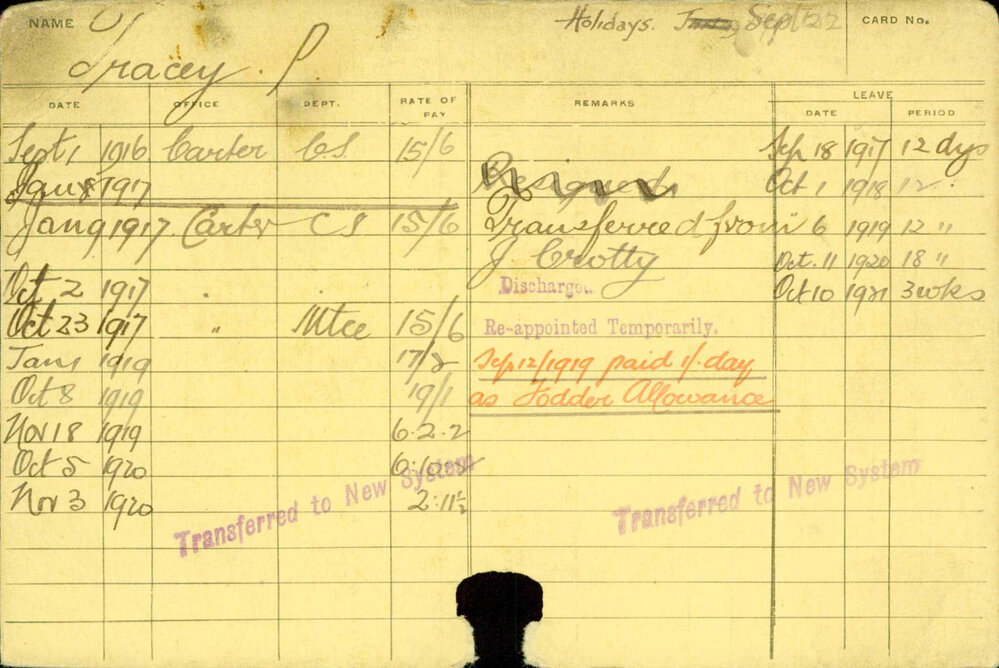 NAME Holidays. Sept 22 CARD No.
Tracey. P.
DATE OFFICE DEPT. RATE OF PAY REMARKS LEAVE DATE PERIOD
Sept 1 1916 Carter C.S. 15/6 Sep 18 1917 12 dys
Jan 8 1917 Resigned Oct 1 1918 12 "
Jan 9 1917 Carter C S 15/6 Transferred from " 6 1919 12 "
J Crotty Oct. 11 1920 18 "
Oct 2 1917 " Discharged Oct 10 1921 3 wks
Oct 23 1917 " Mtce 15/6 Re-appointed Temporarily.
Jan 1 1919 17/2 Sep 12/1919 paid 1/- day
Oct 8 1919 19/1 as Fodder Allowance
Nov 18 1919 6.2.2
Oct 5 1920
Nov 3 1920 2:11½
Transferred to New System
Transferred to New System